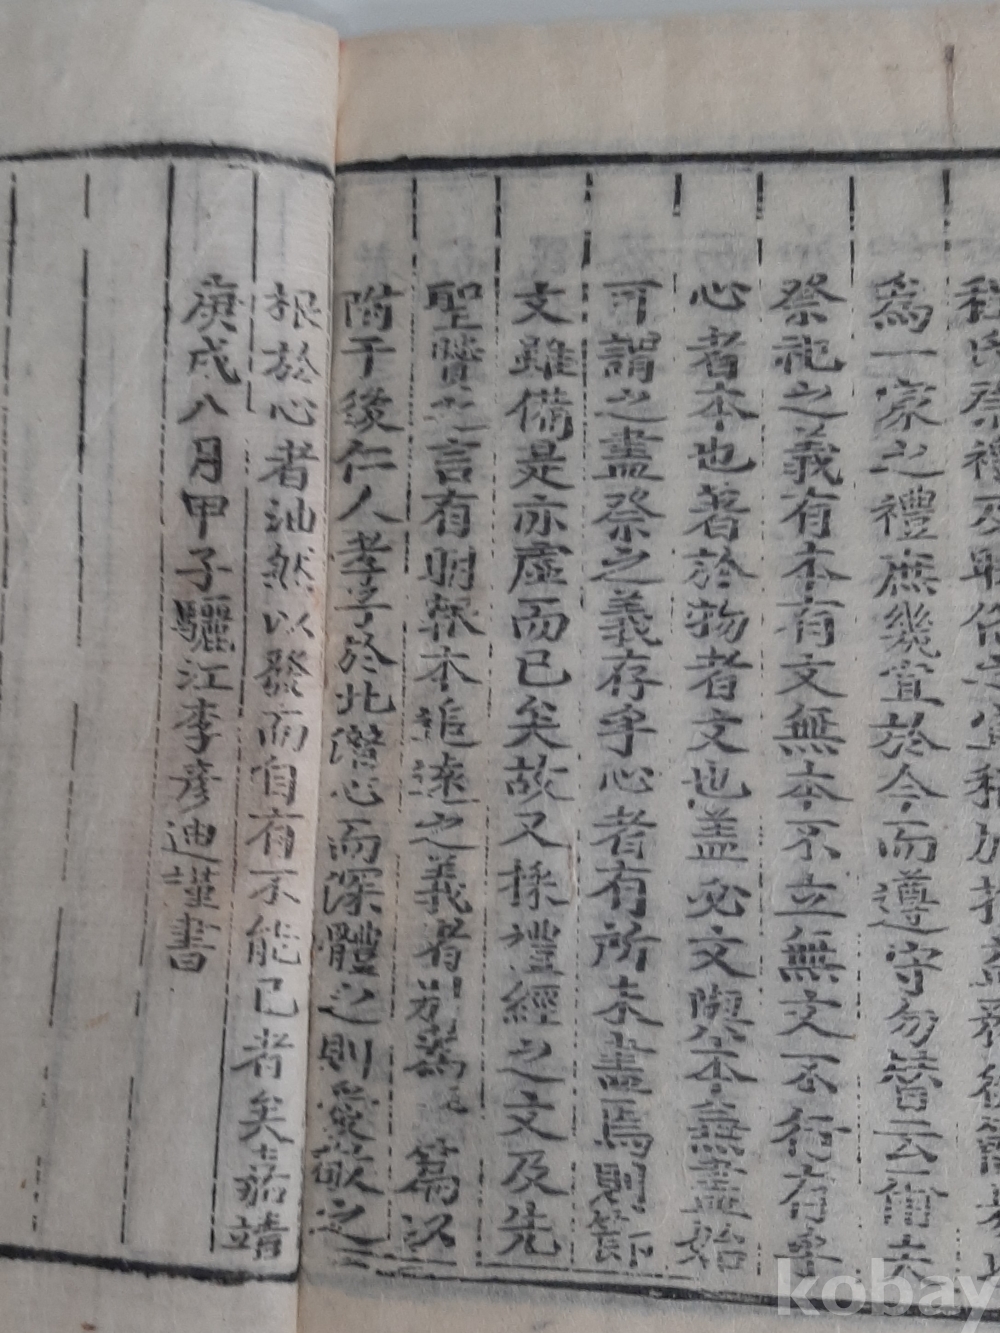 程氏祭禮及
爲一家之禮庶幾宜於今而遵守勿替云爾夫
祭祀之義有本有文無本不立無文不行存乎
心者本也著於物者文也盖必文與本兼盡始
可謂之盡祭之義存乎心者有所未盡焉則節
文雖備是亦虛而已矣故又採禮經之文及先
聖賢之言有明報本追遠之義者別爲一篇以
附于後仁人孝子於此潛心而深體之則愛敬之
根於心者油然以發而自有不能已者矣嘉靖
庚戌八月甲子驪江李彦迪謹書
kobay